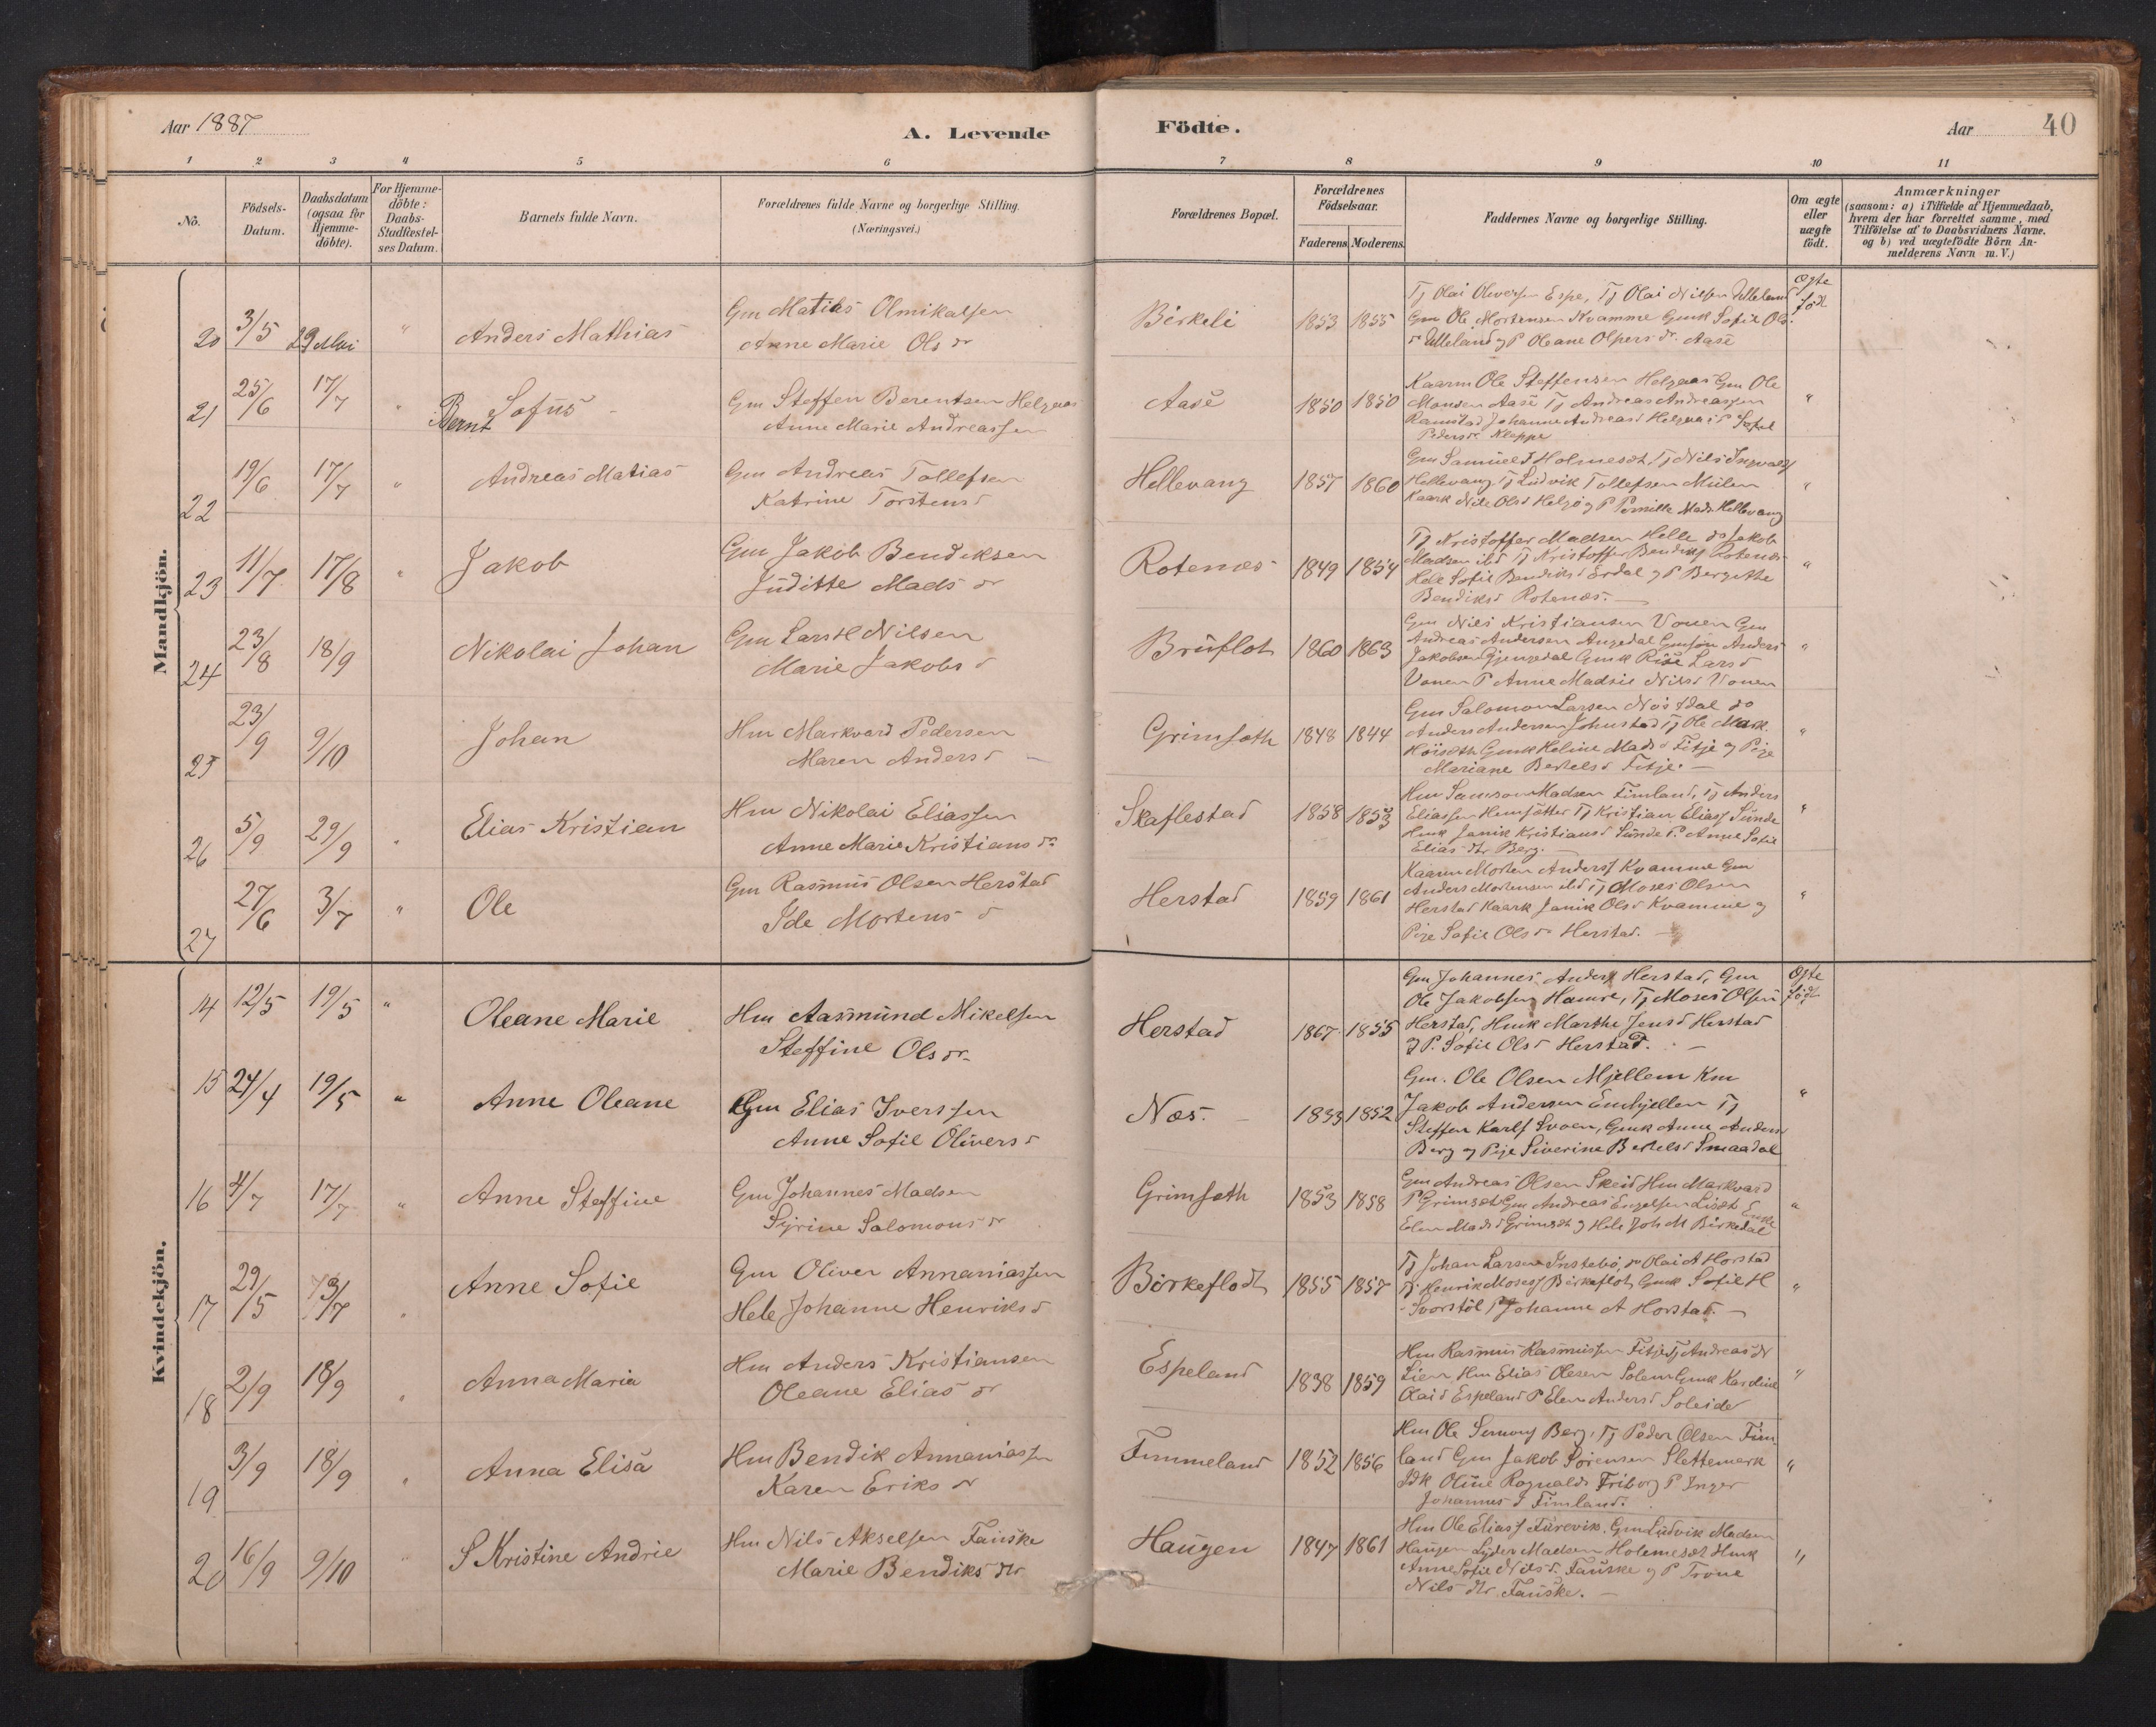 Aar 1887
A. Levende
Födte.
Aar
40
1 2 3 4 5 6 7 8 9 10 11
No.
Födsels-
Datum.
Daabsdatum
(ogsaa for
Hjemme-
döbte).
For Hjemme-
döbte:
Daabs-
Stadfæstel-
ses Datum.
Barnets fulde Navn.
Forældrenes fulde Navne og borgerlige Stilling.
(Næringsvei.)
Forældrenes Bopæl.
Forældrenes
Födselsaar.
Faderens Moderens
Faddernes Navne og borgerlige Stilling.
Om ægte
eller
uægte
født.
Anmærkninger
(saasom: a) i Tilfælde af Hjemmedaab,
hvem der har forrettet samme, med
Tilföielse af to Daabsvidners Navne.
og b) ved uægtefödte Börn An-
melderens Navn m. V.)
Mandkjön.
20 3/5 29 Mai " Anders Mathias
Gm Matias Olmikalsen
Anne Marie Ols dr
Birkeli 1853 1855
Tj Olai Oliversen Espe, Tj Olai Nilsen Ulleland
Gm Ole Mortensen Kvamme Gmk Sofie Ols
d Ulleland og P Oleane Olpers dr Aase
Ægte
föd
21 25/6 17/7 " Bernt Sofus
Gm Steffen Berentsen Helgaas
Anne Marie Andreassen
Aase 1850 1850
Kaarm Ole Steffensen Helgaas Gm Ole
Monsen Aase Tj Andreas Andreassen
Ramstad Johanne Andreasd Helgaas P Sofie
Pedersdr Kleppe
"
22 19/6 17/7 " Andreas Matias
Gm Andreas Tollefsen
Katrine Torstens d
Hellevang 1857 1860
Gm Samuel J Holmeset, Tj Nils Ingvalds
Hellevang, Tj Ludvik Tollefsen Mulen
Kaark Nile Olsd Helgö og P Pernille Mads Hellevang
"
23 11/7 17/8 " Jakob
Gm Jakob Bendiksen
Juditte Mads dr
Rotenæs 1849 1854
Tj Kristoffer Madsen Helle do Jakob
Madsen ibd Tj Kristoffer Bendiks Rotenæs
Hele Sofie Bendiks d Erdal og P Bergithe
Bendiksd Rotenæs.
"
24 23/8 18/9 Nikolai Johan
Gm Lars H Nilsen
Marie Jakobs d
Bruflot 1860 1863
Gm Nils Kristiansen Vonen Gm
Andreas Andersen Angedal Gmsön Anders
Jakobsen Gjengedal Gmk Rise Lars d
Vonen P Anne Madsie Nilsd Vonen
"
25 23/9 9/10 Johan
Hm Markvard Pedersen
Maren Anders d
Grimsøth 1848 1844
Gm Salomon Larsen Nös dal do
Anders Andersen Johnstad Tj Ole Mark.
Höiseth Gmk Heline Mads d Fitje og Pige
Mariane Bertels d Fitje.
"
26 5/9 29/9 " Elias Kristian
Hm Nikolai Eliassen
Anne Marie Kristians dr
Skaflestad 1858 1853
Hm Samson Madsen Fimland, Tj Anders
Eliassen Hemsötter Tj Kristian Eliass Sunde
Hmk Janik Kristians d Sunde P. Anne Sofie
Elias dtr Berg.
"
27 27/6 3/7 " Ole
Gm Rasmus Olsen Herstad
Ide Mortens d
Herstad 1859 1861
Kaarm Morten Anders Kvamme Gm
Anders Mortensen ibd Tj Moses Olsen
Herstad Kaark Janik Olsd Kvamme og
Pige Sofie Ols dr Herstad.
"
Kvindekjön.
14 12/5 19/5 " Oleane Marie
Hm Aasmund Mikelsen
Steffine Ols dr
Herstad 1867 1855
Gm Johannes Anders Herstad, Gm
Ole Jakobsen Hamre, Tj Moses Olsen
Herstad, Hmk Marthe Jens d Herstad
og P. Sofie Ols d Herstad.
Ægte
föd
15 24/4 19/5 " Anne Oleane
Gm Elias Iverssen
Anne Sofie Olivers d
Næs. 1833 1852
Gm. Ole Olsen Mjellem Km
Jakob Andersen Emhjellen Tj
Steffen Karls Svoen, Gmk Anne Anders
Berg og Pige Siverine Bertelsd Smaadal
"
16 4/7 17/7 " Anne Steffine
Gm Johannes Madsen
Syrine Salomons dr
Grimsøth 1853 1858
Gm Andreas Olsen Skeid Hm Markvard
P Grimset Gm Andreas Engelsen Liset Enke
Elen Madsd Grimset og Hele Joh M Birkedal
"
17 29/5 3/7 " Anne Sofie
Gm Oliver Annaniassen
Hele Johanne Henriks d
Birkeflodt 1855 1857
Tj Johan Larsen Instebö, do Olai A Horstad
Tj Henrik Moses Birkeflot, Gmk Sofie H
Svorstöl P Johanne A Horstad.
"
18 2/9 18/9 " Anna Maria
Hm Anders Kristiansen
Oleane Elias dr
Espeland 1838 1859
Hm Rasmus Rasmussen Fitje Tj Andreas N
Lien, Hm Elias Olesen Solem Gmk Karoline
Olai d Espeland P Elen Anders d Soleide
"
19 3/9 18/9 " Anna Elisa
Hm Bendik Annaniassen
Karen Eriks dr
Fimmeland 1852 1856
Hm Ole Simons Berg, Tj Peder Olsen Fim
land Gm Jakob Sörensen Slettemark
Idk Oline Ragnalds Friborg P Inger
Johannes d Fimland.
"
20 16/9 9/10 " S Kristine Andrie
Hm Nils Akselsen Fauske
Marie Bendiks dtr
Haugen 1847 1861
Hm Ole Elias Furevik. Gm Ludvik Madsen
Haugen Lyder Madsen Holmeset Hmk
Anne Sofie Nilsd. Fauske og P Trone
Nils dtr Fauske.
"